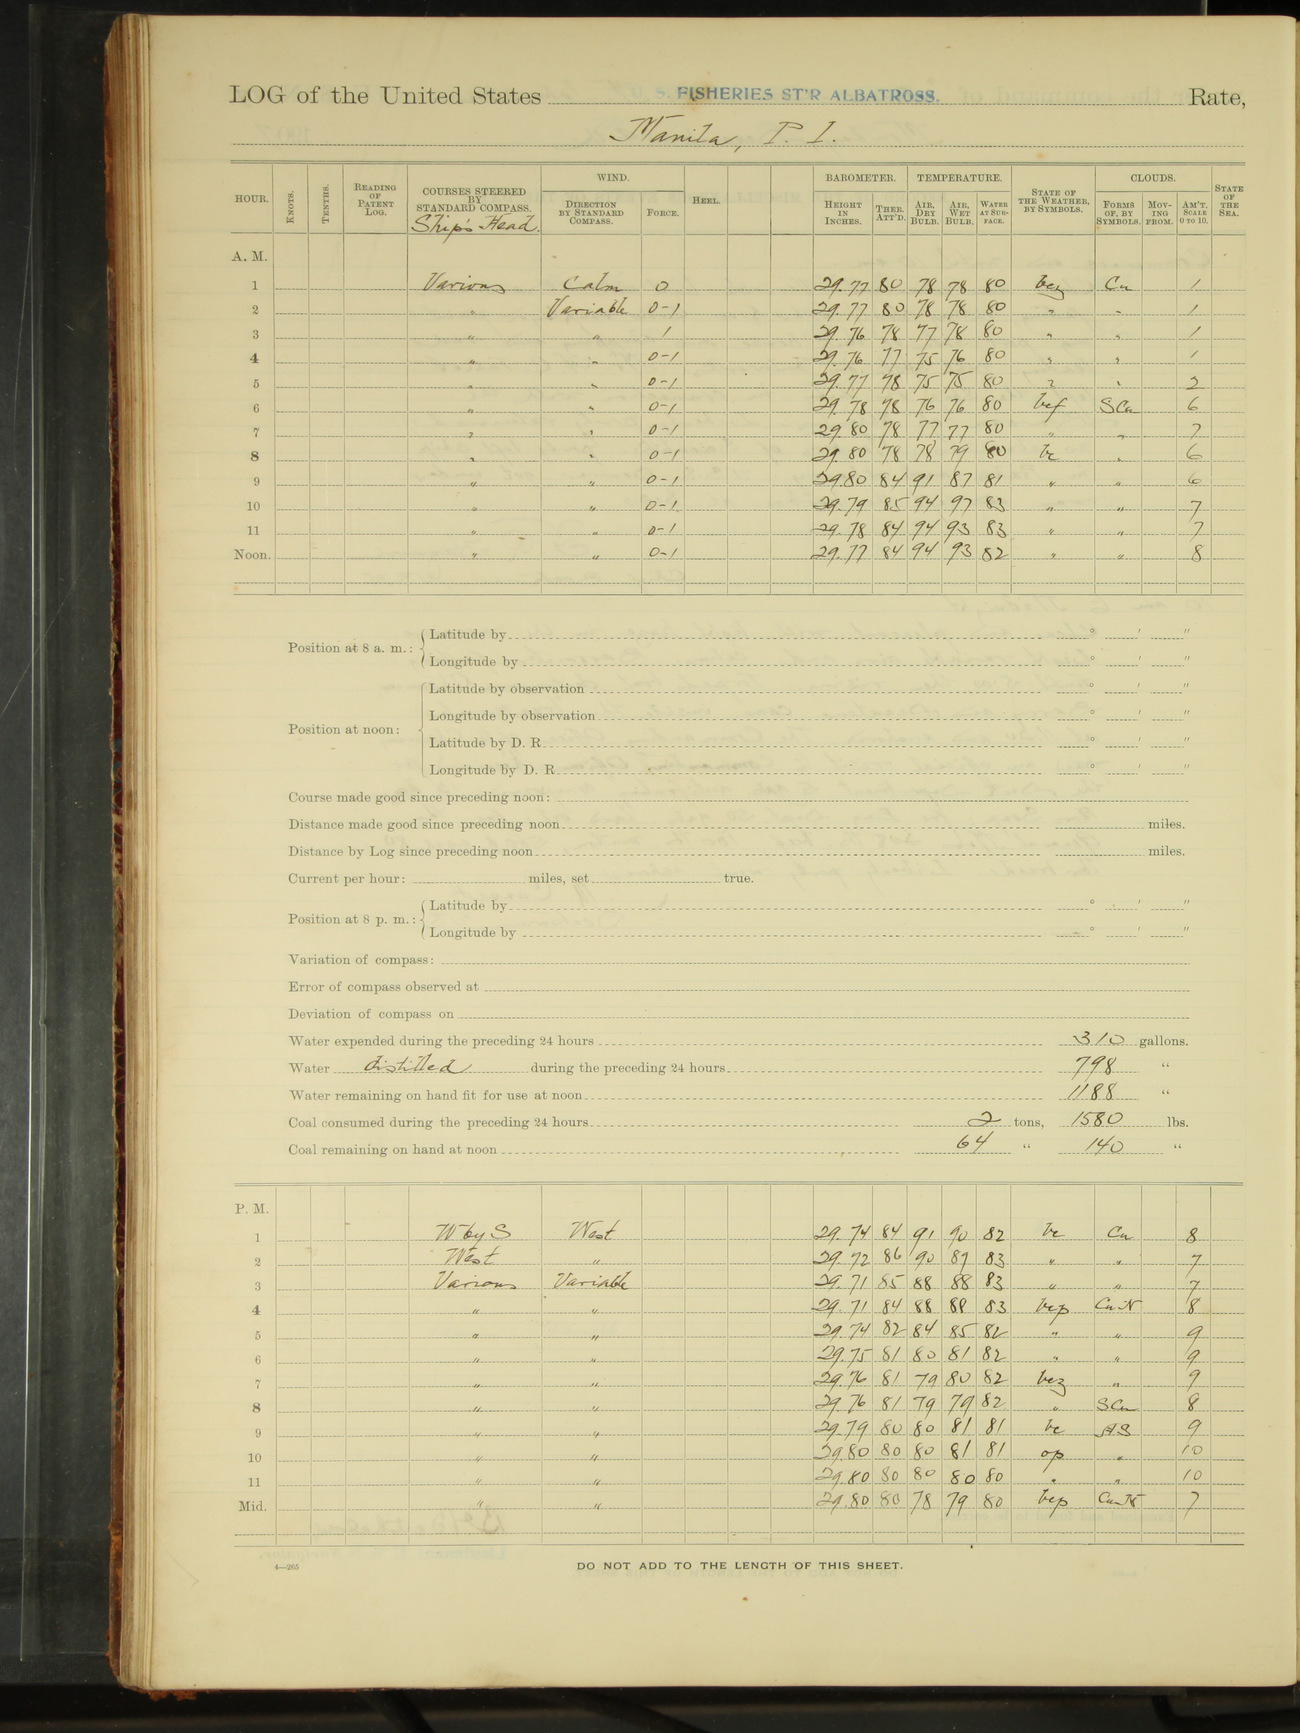 LOG of the United States U. S. FISHERIES ST'R ALBATROSS. Rate,
Manila, P. I.
HOUR. KNOTS. TENTHS. READING OF PATENT LOG. COURSES STEERED BY STANDARD COMPASS. Ship's Head. WIND. DIRECTION BY STANDARD COMPASS. FORCE. HEEL. BAROMETER. HEIGHT IN INCHES. THER. ATT'D. TEMPERATURE. AIR, DRY BULB. AIR, WET BULB. WATER AT SURFACE. STATE OF THE WEATHER, BY SYMBOLS. CLOUDS. FORMS OF, BY SYMBOLS. MOVING FROM. AM'T. SCALE 0 TO 10. STATE OF THE SEA.
A. M.
1 Various Calm 0 29.77 80 78 78 80 bcz Cu 1
2 " Variable 0-1 29.77 80 78 78 80 " " 1
3 " " 1 29.76 78 77 78 80 " " 1
4 " " 0-1 29.76 77 75 76 80 " " 1
5 " " 0-1 29.77 78 75 75 80 " " 2
6 " " 0-1 29.78 78 76 76 80 bcf SCu 6
7 " " 0-1 29.80 78 77 77 80 " " 7
8 " " 0-1 29.80 78 78 79 80 bc " 6
9 " " 0-1 29.80 84 91 87 81 " " 6
10 " " 0-1 29.79 85 94 97 83 " " 7
11 " " 0-1 29.78 84 94 93 83 " " 7
Noon. " " 0-1 29.77 84 94 93 82 " " 8
Position at 8 a. m.: Latitude by ° ' "
Longitude by ° ' "
Position at noon: Latitude by observation ° ' "
Longitude by observation ° ' "
Latitude by D. R. ° ' "
Longitude by D. R. ° ' "
Course made good since preceding noon:
Distance made good since preceding noon miles.
Distance by Log since preceding noon miles.
Current per hour: miles, set true.
Position at 8 p. m.: Latitude by ° ' "
Longitude by ° ' "
Variation of compass:
Error of compass observed at
Deviation of compass on
Water expended during the preceding 24 hours 310 gallons.
Water distilled during the preceding 24 hours 798 "
Water remaining on hand fit for use at noon 1188 "
Coal consumed during the preceding 24 hours 2 tons, 1580 lbs.
Coal remaining on hand at noon 64 " 140 "
P. M.
1 W by S West 29.74 84 91 90 82 bc Cu 8
2 West " 29.72 86 90 89 83 " " 7
3 Various Variable 29.71 85 88 88 83 " " 7
4 " " 29.71 84 88 88 83 bcp CuN 8
5 " " 29.74 82 84 85 82 " " 9
6 " " 29.75 81 80 81 82 " " 9
7 " " 29.76 81 79 80 82 bcz " 9
8 " " 29.76 81 79 79 82 " SCu 8
9 " " 29.79 80 80 81 81 bc AS 9
10 " " 29.80 80 80 81 81 op " 10
11 " " 29.80 80 80 80 80 " " 10
Mid. " " 29.80 80 78 79 80 bcp CuN 7
4—265 DO NOT ADD TO THE LENGTH OF THIS SHEET.